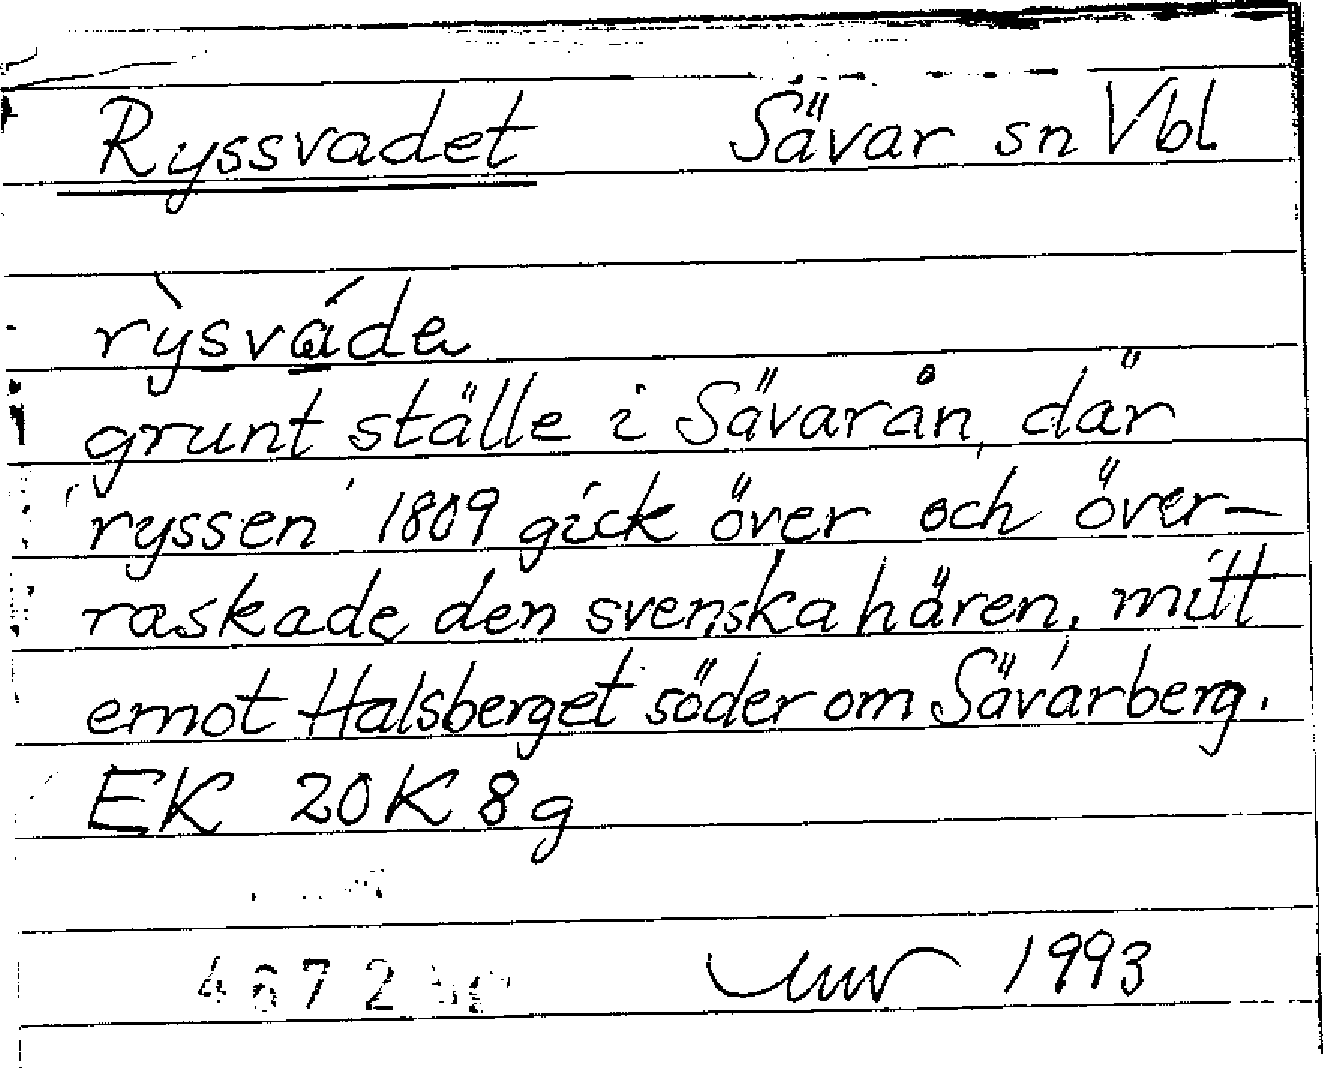 Ryssvadet Sävar sn Vbl
rỳsváde
grunt ställe i Sävarån, där
ryssen 1809 gick över och över-
raskade den svenska hären, mitt
emot Halsberget söder om Sävarberg.
EK 20K8g
1993